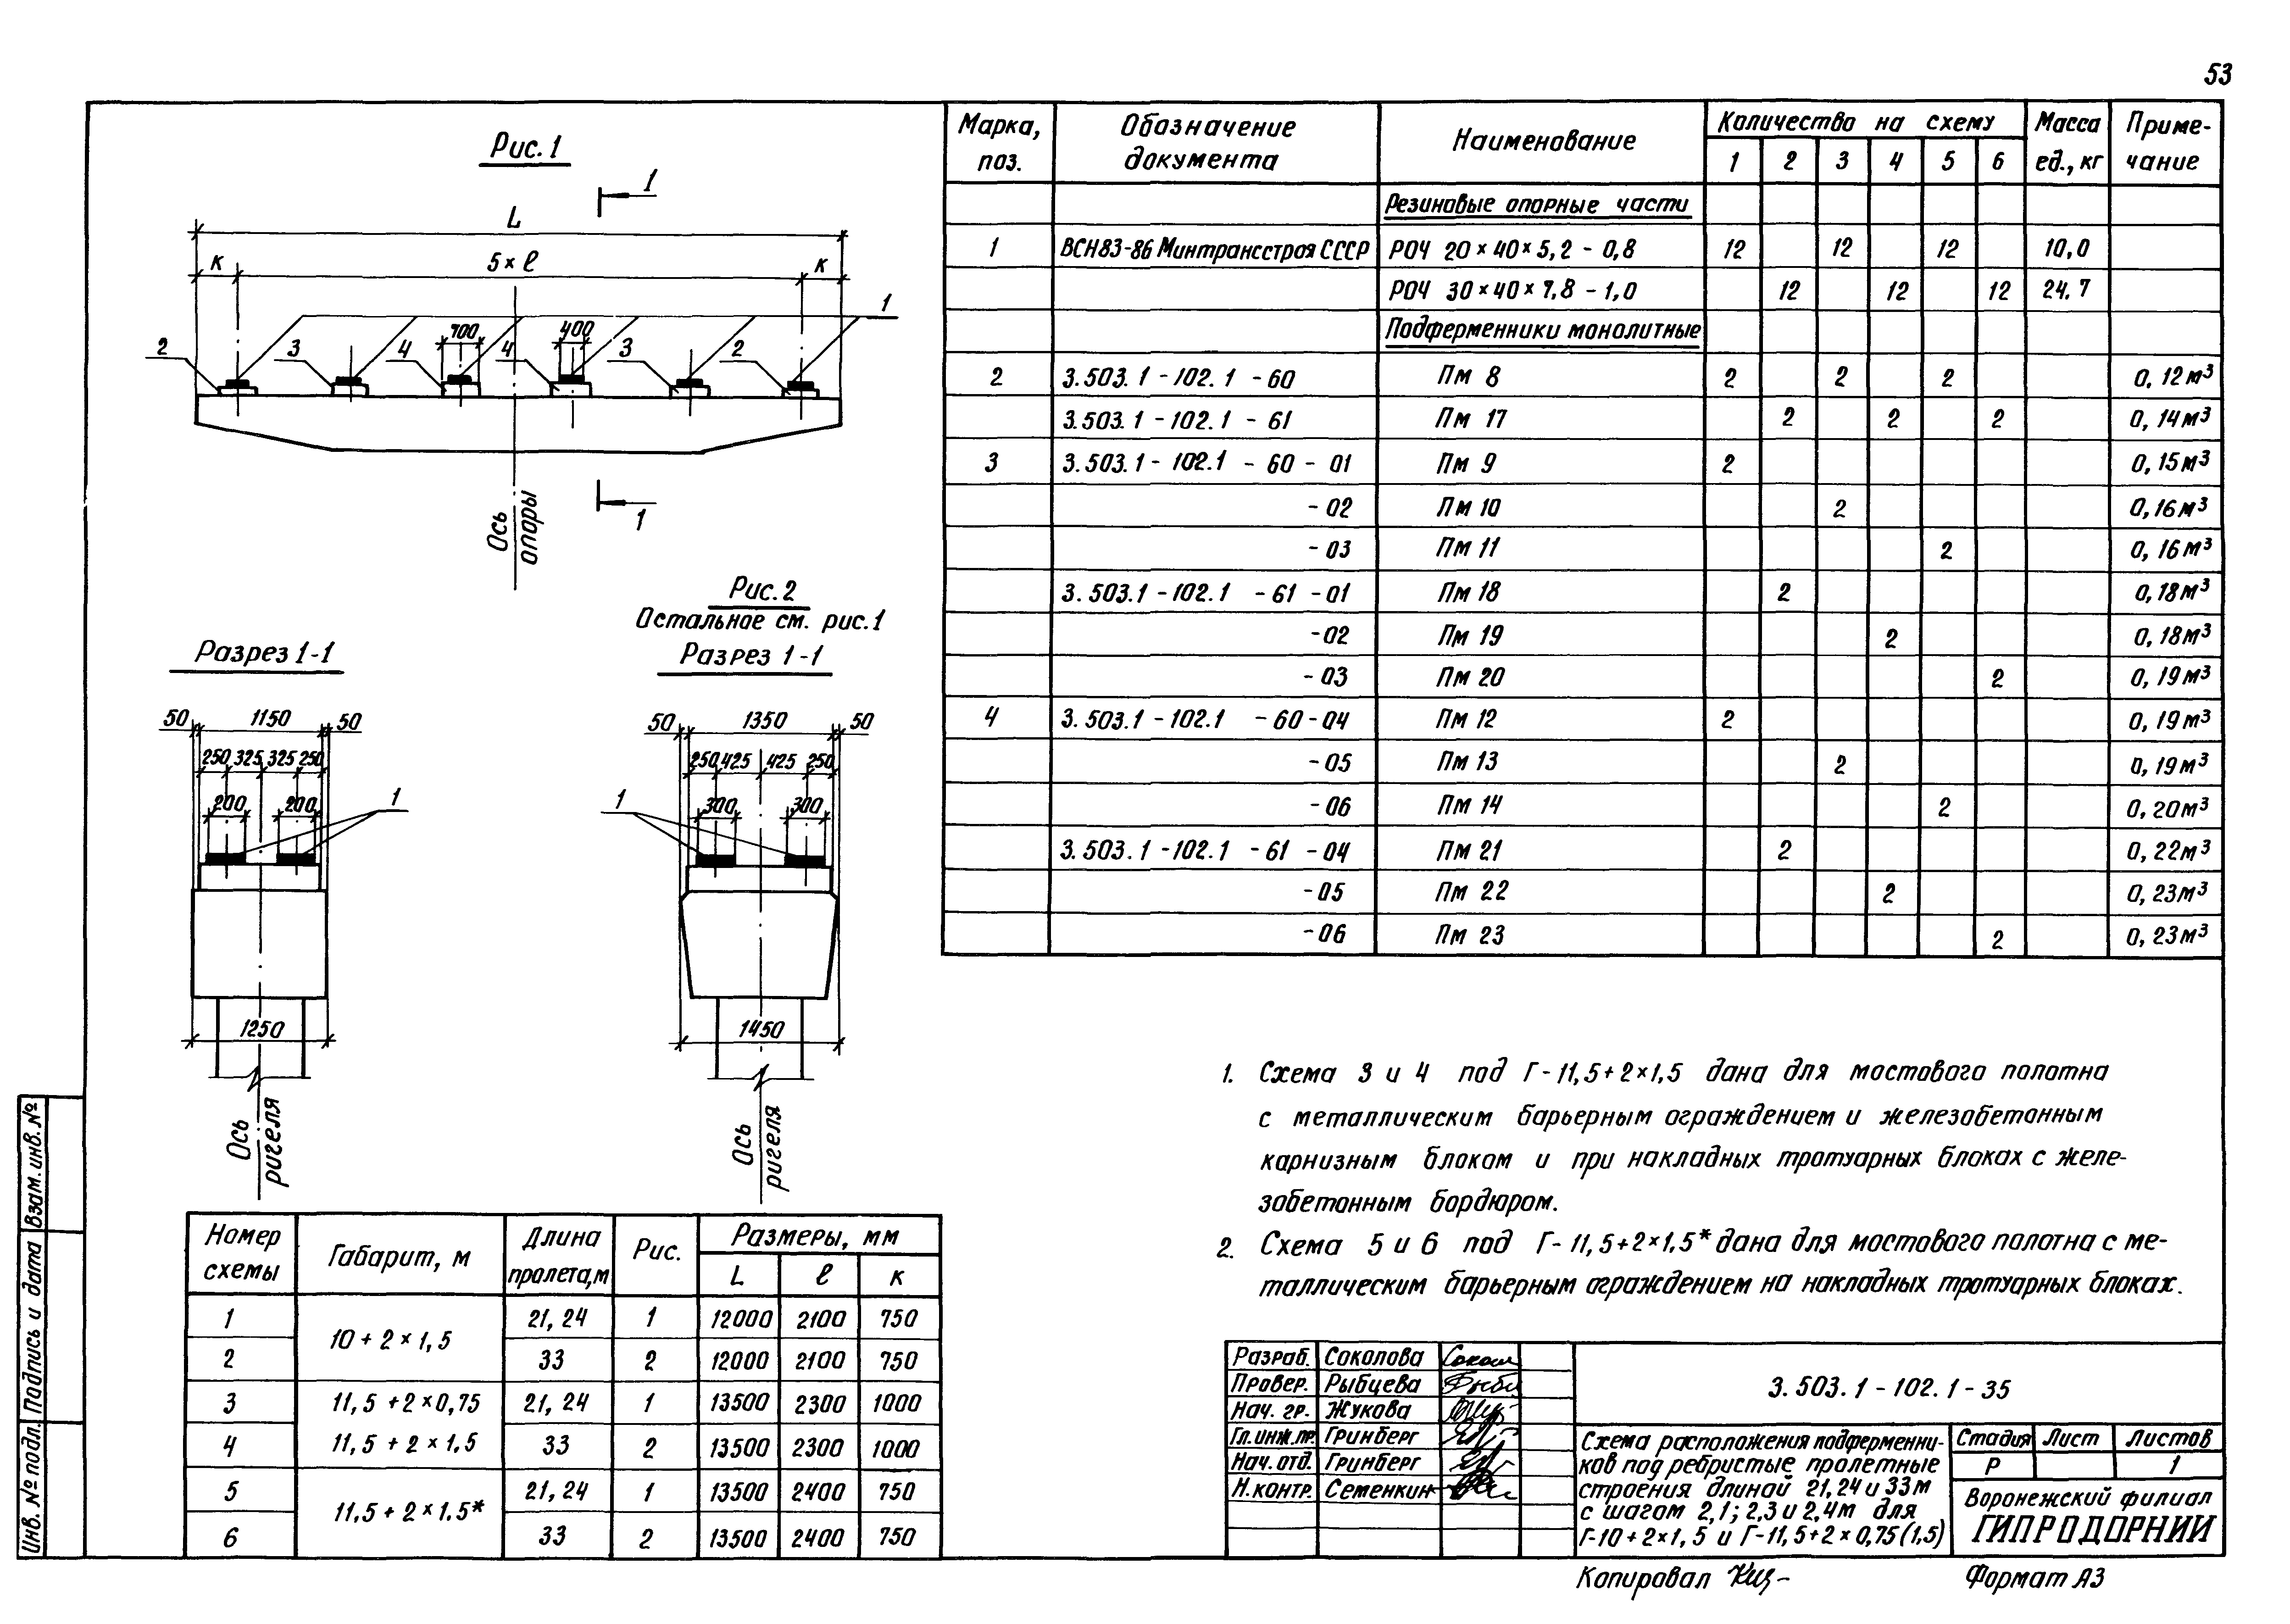 53
Рис. 1
1
L
к 5 × ℓ к
1
700 400
2 3 4 4 3 2
1
Ось
опоры
Рис. 2
Остальное см. рис. 1
Разрез 1-1
Разрез 1-1
50 1150 50
250 325 325 250
200 200
1
1250
Ось
ригеля
50 1350 50
250 425 425 250
300 300
1
1450
Ось
ригеля
Марка, поз. Обозначение документа Наименование Количество на схему Масса ед., кг Приме-чание
1 2 3 4 5 6
Резиновые опорные части
1 ВСН83-86 Минтрансстроя СССР РОЧ 20×40×5,2 - 0,8 12 12 12 10,0
РОЧ 30×40×7,8 - 1,0 12 12 12 24,7
Подферменники монолитные
2 3.503.1-102.1 -60 Пм 8 2 2 2 0,12м³
3.503.1-102.1 -61 Пм 17 2 2 2 0,14м³
3 3.503.1-102.1 -60 -01 Пм 9 2 0,15м³
-02 Пм 10 2 0,16м³
-03 Пм 11 2 0,16м³
3.503.1-102.1 -61 -01 Пм 18 2 0,18м³
-02 Пм 19 2 0,18м³
-03 Пм 20 2 0,19м³
4 3.503.1-102.1 -60-04 Пм 12 2 0,19м³
-05 Пм 13 2 0,19м³
-06 Пм 14 2 0,20м³
3.503.1-102.1 -61 -04 Пм 21 2 0,22м³
-05 Пм 22 2 0,23м³
-06 Пм 23 2 0,23м³
1. Схема 3 и 4 под Г-11,5+2×1,5 дана для мостового полотна
с металлическим барьерным ограждением и железобетонным
карнизным блоком и при накладных тротуарных блоках с желе-
зобетонным бордюром.
2. Схема 5 и 6 под Г-11,5+2×1,5* дана для мостового полотна с ме-
таллическим барьерным ограждением на накладных тротуарных блоках.
Номер схемы Габарит, м Длина пролета,м Рис. Размеры, мм
L ℓ к
1 10 + 2 × 1,5 21, 24 1 12000 2100 750
2 33 2 12000 2100 750
3 11,5 + 2 × 0,75 21, 24 1 13500 2300 1000
4 11,5 + 2 × 1.5 33 2 13500 2300 1000
5 11,5 + 2 × 1.5* 21, 24 1 13500 2400 750
6 33 2 13500 2400 750
Инв. № подл. Подпись и дата Взам. инв. №
Разраб. Соколова
Провер. Рыбцева
Нач. гр. Жукова
Гл. инж. пр. Гринберг
Нач. отд. Гринберг
Н. контр. Семенкин
3.503.1-102.1-35
Схема расположения подферменни-
ков под ребристые пролетные
строения длиной 21,24 и 33м
с шагом 2,1; 2,3 и 2,4м для
Г-10+2×1,5 и Г-11,5+2×0,75(1,5)
Стадия Лист Листов
Р 1
Воронежский филиал
ГИПРОДОРНИИ
Копировал
Формат А3